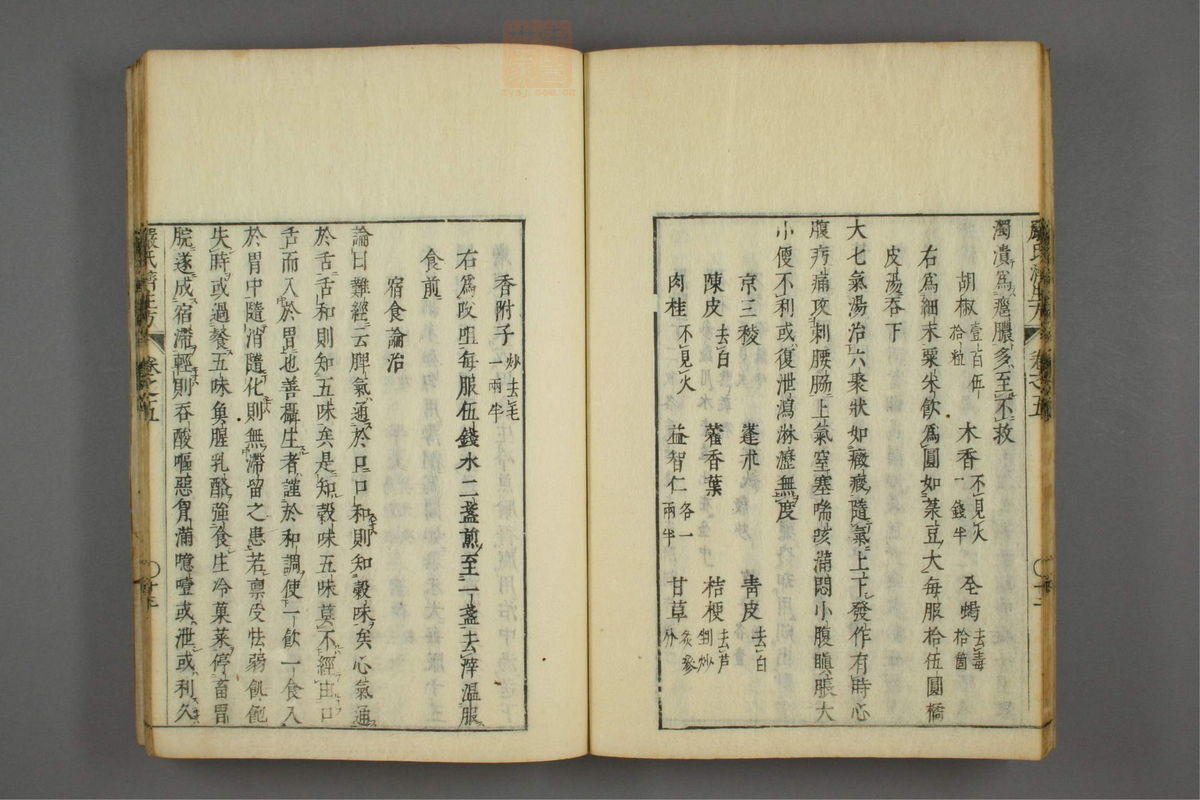 濁潰爲癰膿多至不救
胡椒壹百伍拾粒 木香不見火一錢半 全蝎去毒拾箇
右爲細末粟米飲爲圓如菉豆大每服拾伍圓橘
皮湯吞下
大七氣湯治六聚狀如癥瘕隨氣上下發作有時心
腹㽲痛攻刺腰脇上氣窒塞喘咳滿悶小腹䐜脹大
小便不利或復泄瀉淋瀝無度
京三稜 蓬朮 青皮去白
陳皮去白 藿香葉 桔梗去芦剉炒
肉桂不見火 益智仁各一兩半 甘草炙
香附子炒去毛一兩半
右爲㕮咀每服伍錢水二盞煎至一盞去滓溫服
食前
宿食論治
論曰難經云脾氣通於口口和則知穀味矣心氣通
於舌舌和則知五味矣是知穀味五味莫不經由口
舌而入於胃也善攝生者謹於和調使一飲一食入
於胃中隨消隨化則無滯留之患若禀受怯弱飢飽
失時或過餐五味魚腥乳酪強食生冷菓菜停畜胃
脘遂成宿滯輕則吞酸嘔惡胷滿噫噎或泄或利久
嚴氏濟生方 卷之五